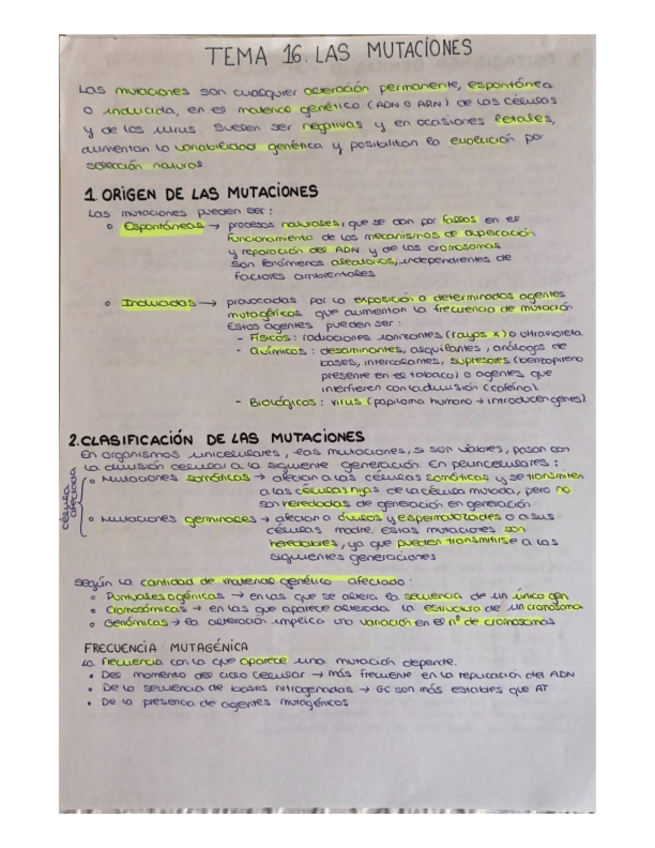 TEMA 16. LAS MUTACIONES
Las mutaciones son cualquier alteración permanente, espontánea
o inducida, en el material genético (ADN o ARN) de las células
y de los virus. Suelen ser negativas y en ocasiones letales,
aumentan la variabilidad genética y posibilitan la evolución por
selección natural.
1. ORIGEN DE LAS MUTACIONES
Las mutaciones pueden ser:
o Espontáneas → procesos naturales, que se dan por fallos en el
funcionamiento de los mecanismos de duplicación
y reparación del ADN y de los cromosomas
son fenómenos aleatorios, independientes de
factores ambientales
o Inducidas → provocadas por la exposición a determinados agentes
mutagénicos que aumentan la frecuencia de mutación
Estos agentes pueden ser:
- Físicos: radiaciones ionizantes (rayos x) o ultravioleta
- Químicos: desaminantes, alquilantes, análogos de
bases, intercalantes, supresores (benzopireno
presente en el tabaco) o agentes que
interfieren con la división (cafeína)
- Biológicos: virus (papiloma humano → introducen genes)
2. CLASIFICACIÓN DE LAS MUTACIONES
En organismos unicelulares, las mutaciones, si son viables, pasan con
la división celular a la siguiente generación. En pluricelulares:
célula afectada
o Mutaciones somáticas → afectan a las células somáticas y se transmiten
a las células hijas de la célula mutada, pero no
son heredadas de generación en generación.
o Mutaciones germinales → afectan a óvulos y espermatozoides o a sus
células madre. Estas mutaciones son
heredables, ya que pueden transmitirse a las
siguientes generaciones
Según la cantidad de material genético afectado:
o Puntuales o génicas → en las que se altera la secuencia de un único gen
o Cromosómicas → en las que aparece alterada la estructura de un cromosoma
o Genómicas → la alteración implica una variación en el nº de cromosomas
FRECUENCIA MUTAGÉNICA
La frecuencia con la que aparece una mutación depende.
• Del momento del ciclo celular → más frecuente en la replicación del ADN
• De la secuencia de bases nitrogenadas → GC son más estables que AT
• De la presencia de agentes mutagénicos